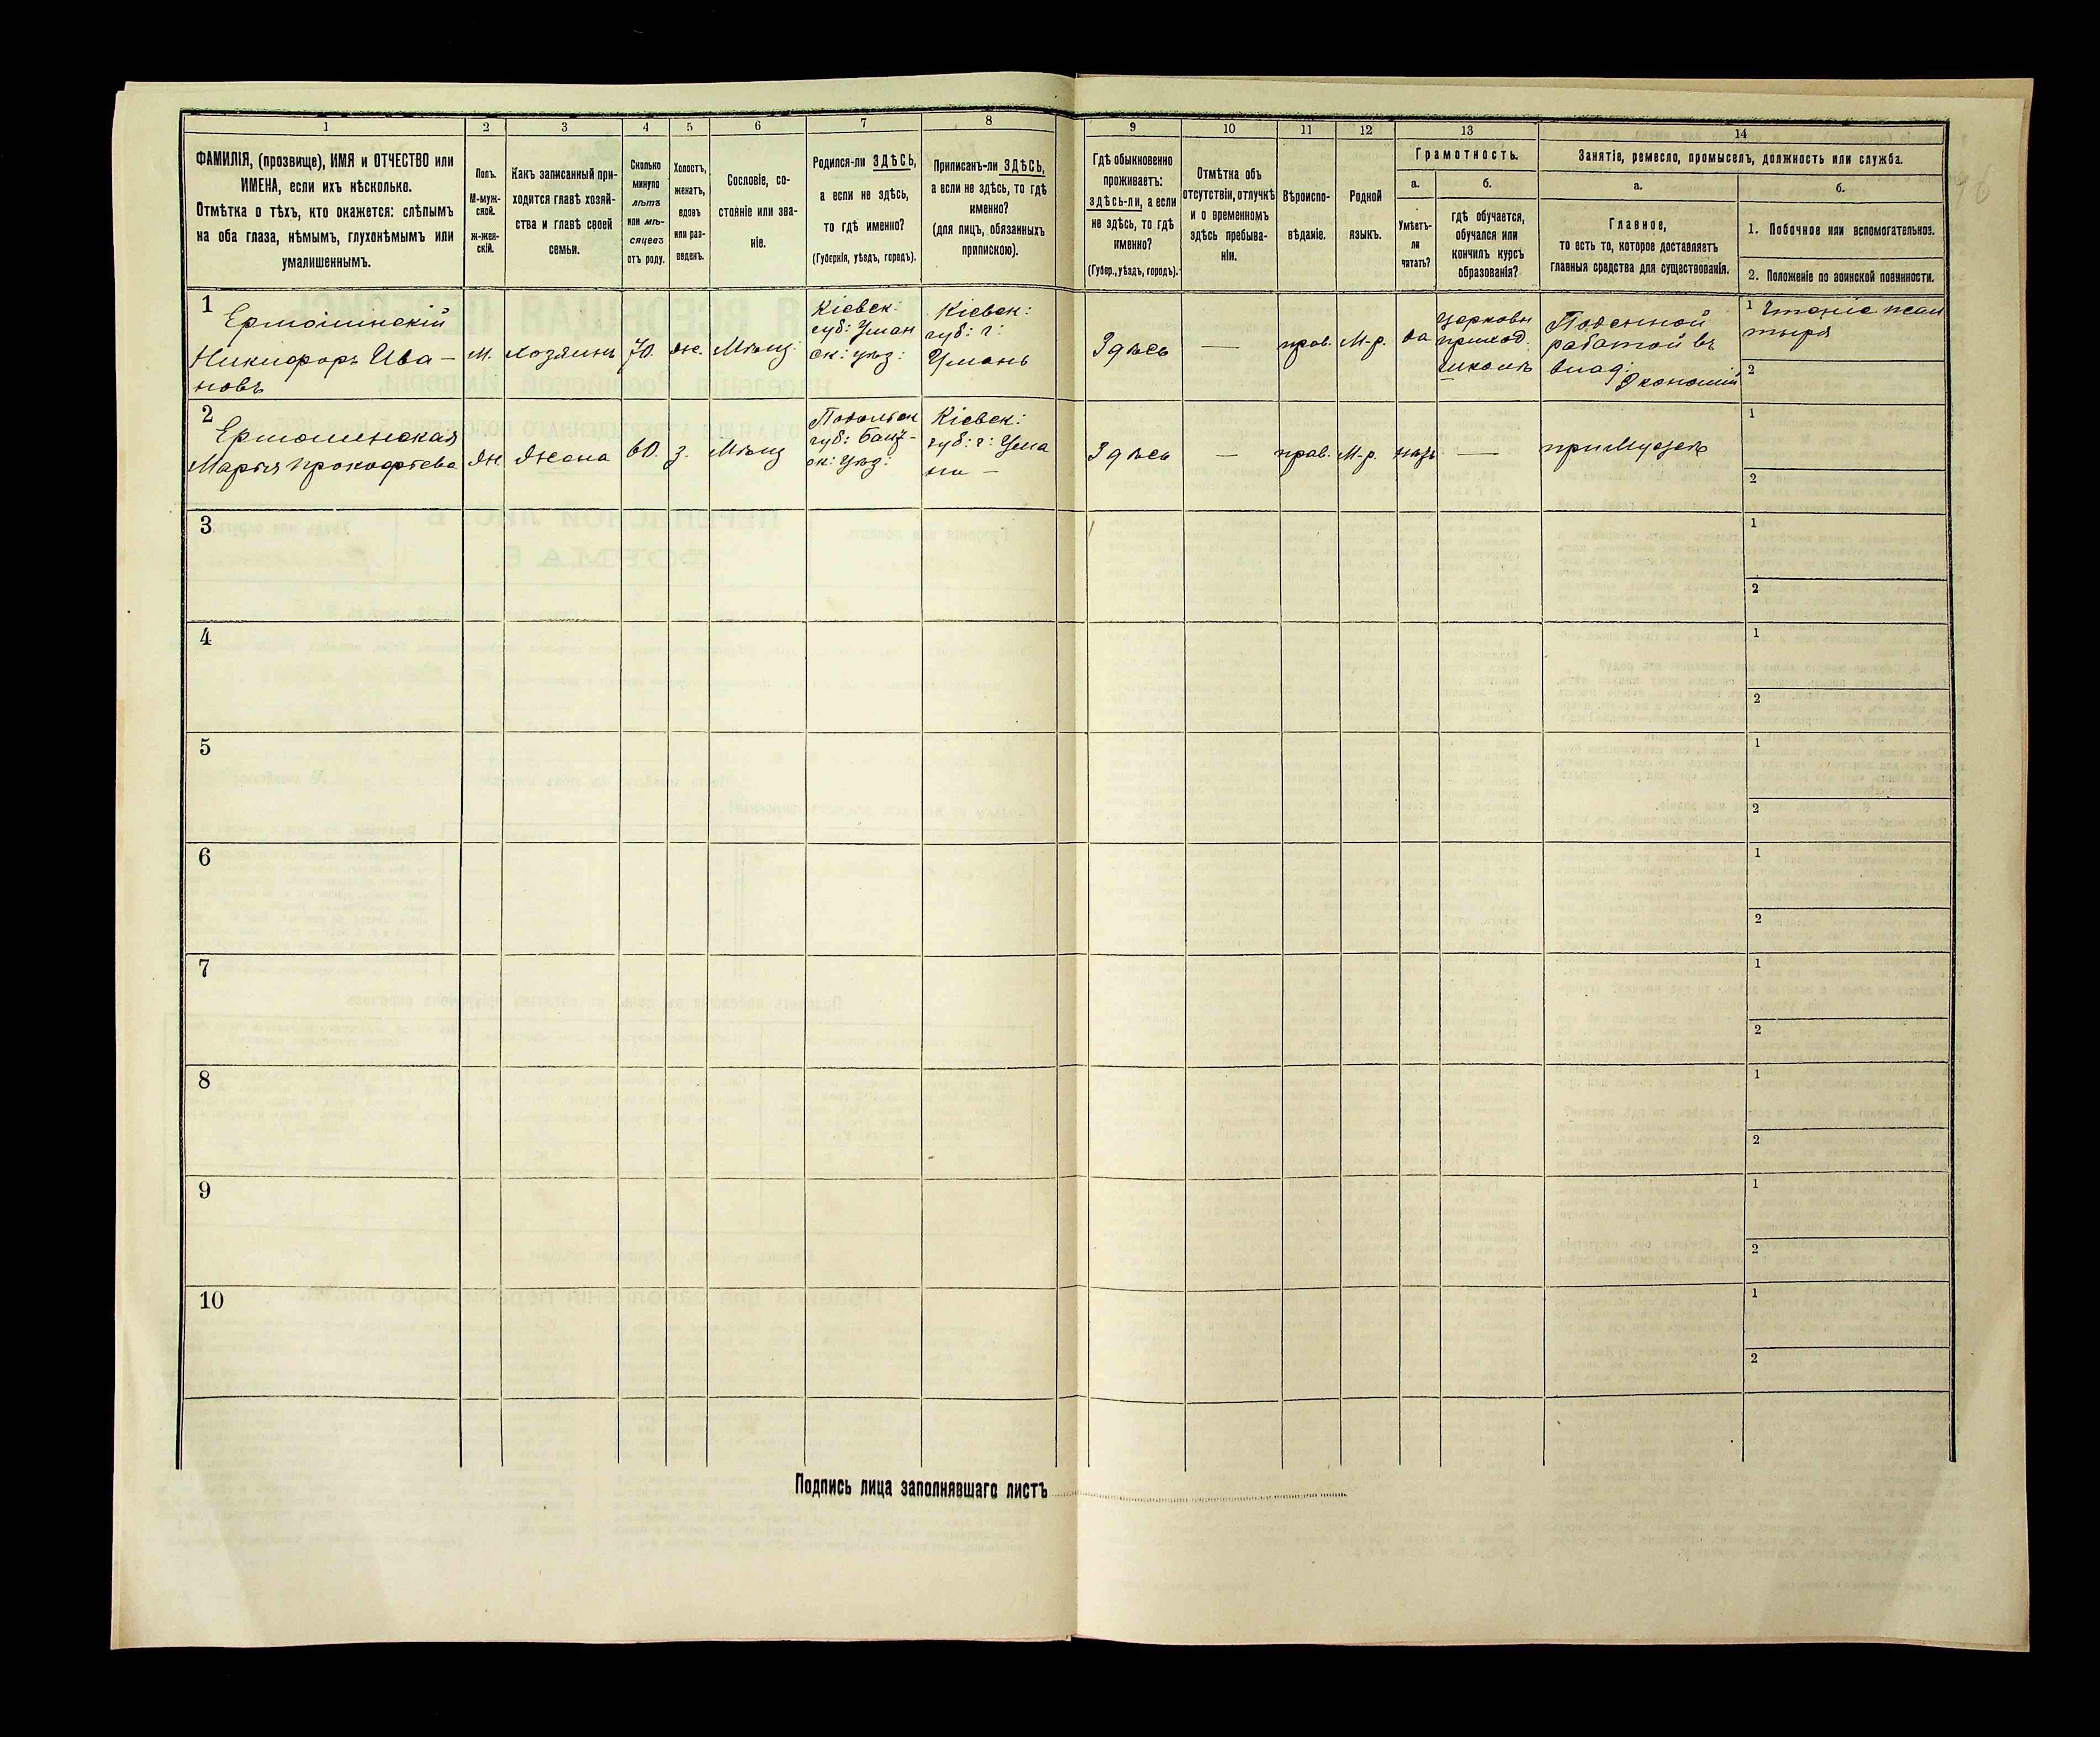 1 2 3 4 5 6 7 8 9 10 11 12 13 14
ФАМИЛІЯ, (прозвище), ИМЯ и ОТЧЕСТВО или
ИМЕНА, если ихъ нѣсколько.
Отмѣтка о тѣхъ, кто окажется: слѣпымъ
на оба глаза, нѣмымъ, глухонѣмымъ или
умалишеннымъ.
Полъ.
М-муж-
ской.
ж-жен-
скій.
Какъ записанный при-
ходится главѣ хозяй-
ства и главѣ своей
семьи.
Сколько
минуло
лѣтъ
или мѣ-
сяцевъ
отъ роду.
Холостъ,
женатъ,
вдовъ
или раз-
веденъ.
Сословіе, со-
стояніе или зва-
ніе.
Родился-ли ЗДѢСЬ,
а если не здѣсь,
то гдѣ именно?
(Губернія, уѣздъ, городъ).
Приписанъ-ли ЗДѢСЬ,
а если не здѣсь, то гдѣ
именно?
(для лицъ, обязанныхъ
припискою).
Гдѣ обыкновенно
проживаетъ:
здѣсь-ли, а если
не здѣсь, то гдѣ
именно?
(Губер., уѣздъ, городъ).
Отмѣтка объ
отсутствіи, отлучкѣ
и о временномъ
здѣсь пребыва-
ніи.
Вѣроиспо-
вѣданіе.
Родной
языкъ.
Грамотность.
а.
Умѣетъ-
ли
читать?
б.
гдѣ обучается,
обучался или
кончилъ курсъ
образованія?
Занятіе, ремесло, промыселъ, должность или служба.
а.
Главное,
то есть то, которое доставляетъ
главныя средства для существованія.
б.
1. Побочное или вспомогательное.
2. Положеніе по воинской повинности.
1
Ермолинскій
Никифоръ Ива-
новъ
м.
хозяинъ
70.
же.
Мѣщ:
Кіевск:
губ: Уман
ск: уѣз:
Кіевск:
губ: г:
Умань
Здѣсь
—
прав.
М-р.
да
Церковн
приход.
школѣ
Поденной
работой въ
влад:
Экономіи
1 Чтеніе псал
тыря
2
2
Ермолинская
Марѣя Прокофѣева
Ж.
Жена
60.
з.
Мѣщ
Подольск
губ: Балт-
ск: Уѣз:
Кіевск:
губ: г: Ума
ни —
Здѣсь
—
прав.
М-р.
нѣтъ
—
при Мужѣ
1
2
3
1
2
4
1
2
5
1
2
6
1
2
7
1
2
8
1
2
9
1
2
10
1
2
Подпись лица заполнявшаго листъ